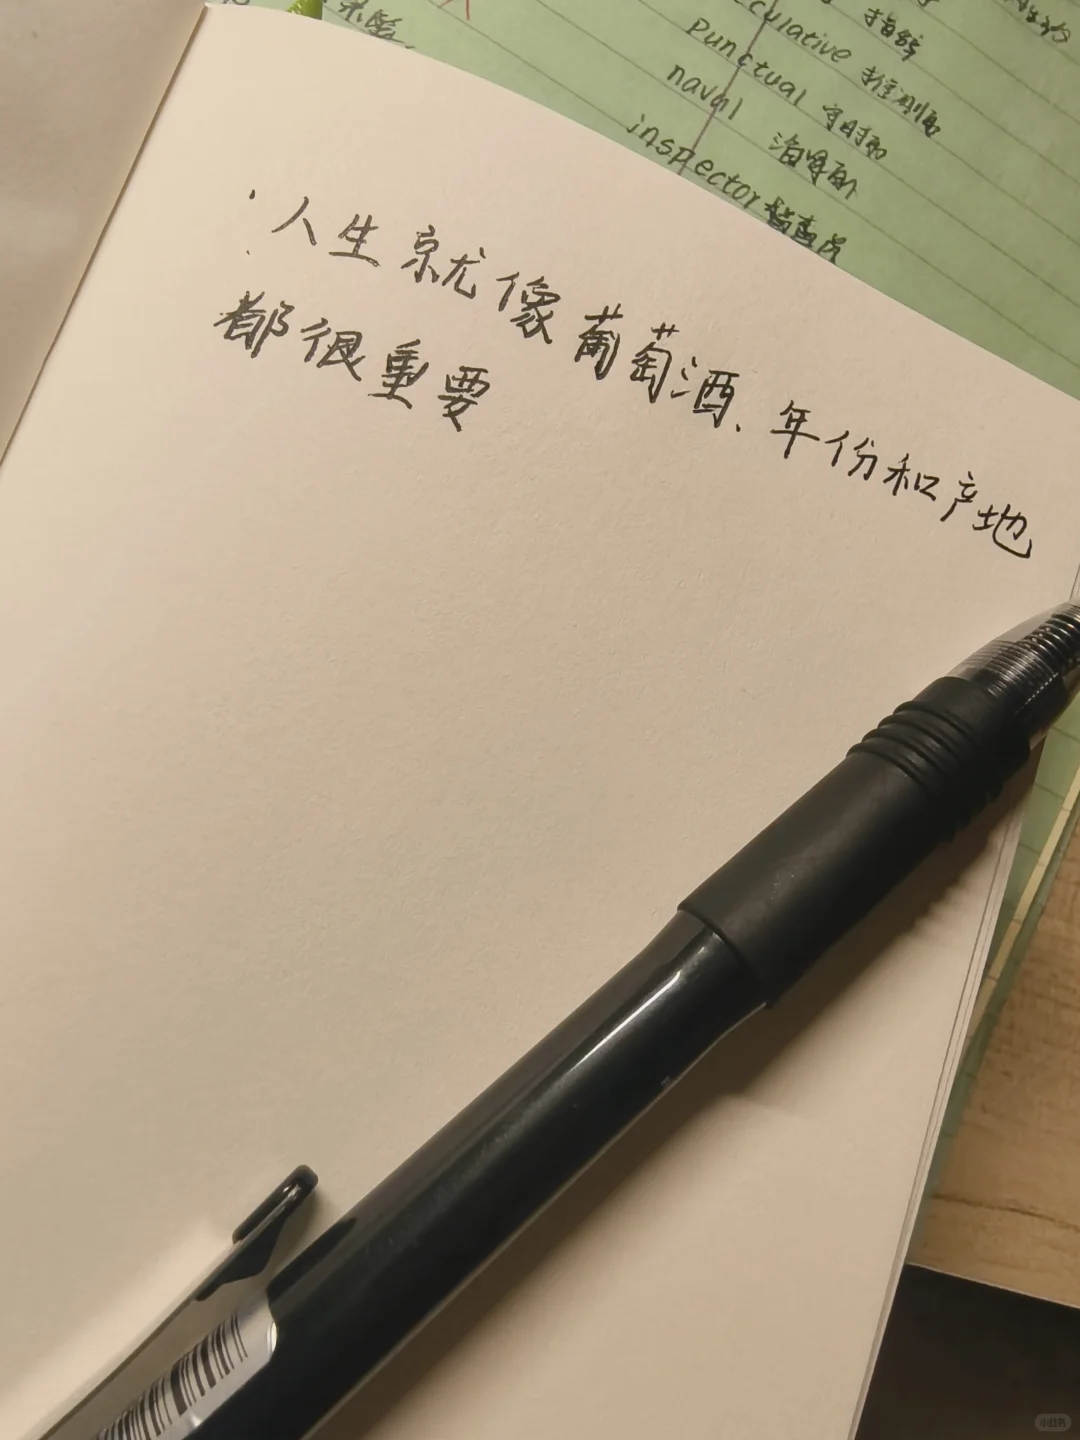 culative 推测的
punctual 守时的
naval 海军的
inspector 督查员
人生就像葡萄酒、年份和产地
都很重要
小红书